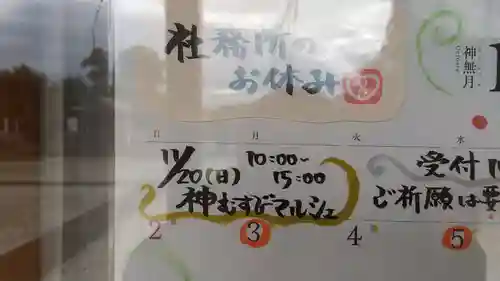 社務所の
お休み
神無月
日 月 火 水
11/20(日) 10:00~
15:00
神むすびマルシェ
受付
ご祈願は要
2 3 4 5